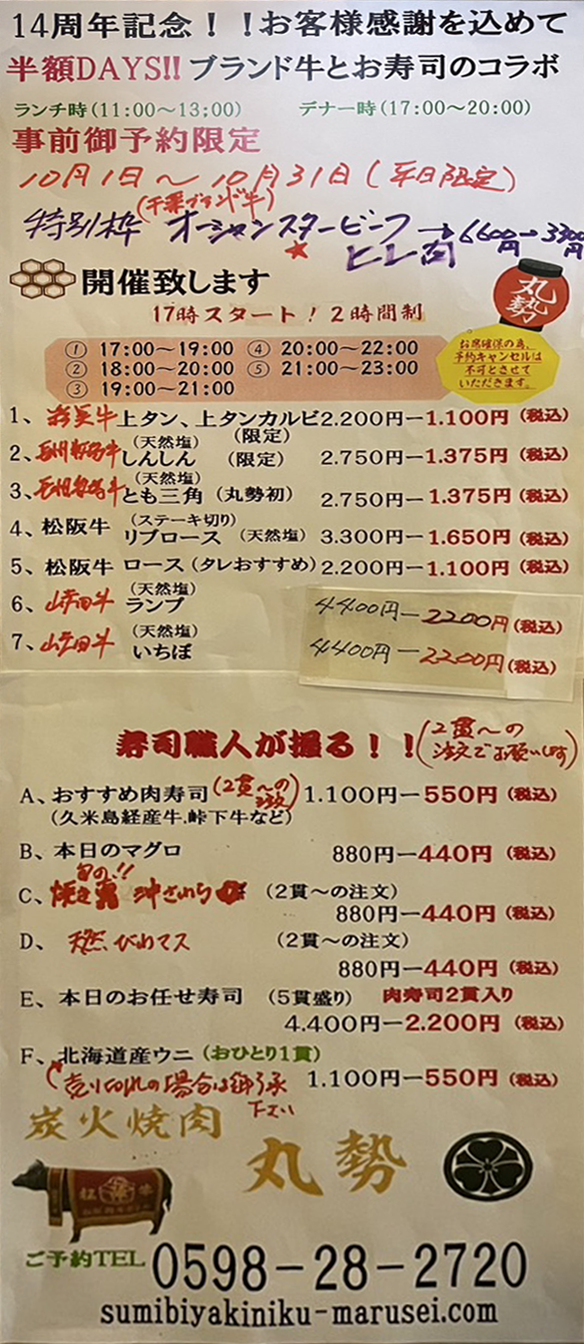 14周年記念！！お客様感謝を込めて
半額DAYS!! ブランド牛とお寿司のコラボ
ランチ時(11:00～13;00) デナー時(17:00～20:00)
事前御予約限定
10月1日～10月31日(平日限定)
(千葉ブランド牛)
特別枠 オーシャンスタービーフ→6600円→3300円
★ ヒレ肉
開催致します
丸勢
17時スタート！2時間制
① 17:00～19:00 ④ 20:00～22:00
② 18:00～20:00 ⑤ 21:00～23:00
③ 19:00～21:00
お席確保の為、
予約キャンセルは
不可とさせて
いただきます。
1、 牛上タン、上タンカルビ2.200円ー1.100円(税込)
(天然塩) (限定)
2、 牛しんしん (限定) 2.750円ー1.375円(税込)
(天然塩)
3、 牛とも三角 (丸勢初) 2.750円ー1.375円(税込)
(ステーキ切り)
4、松阪牛 リブロース (天然塩) 3.300円ー1.650円(税込)
5、松阪牛 ロース (タレおすすめ) 2.200円ー1.100円(税込)
(天然塩)
6、 牛 ランプ 4400円ー2200円(税込)
(天然塩)
7、 牛 いちぼ 4400円ー2200円(税込)
寿司職人が握る！！(2貫～の
注文でお願いします)
A、おすすめ肉寿司(2貫～の注文) 1.100円ー550円(税込)
(久米島経産牛,峠下牛など)
B、本日のマグロ 880円ー440円(税込)
旬の!!
C、 沖さわら (2貫～の注文)
880円ー440円(税込)
D、天然、びわマス (2貫～の注文)
880円ー440円(税込)
E、本日のお任せ寿司 (5貫盛り) 肉寿司2貫入り
4.400円ー2.200円(税込)
F、北海道産ウニ (おひとり1貫)
売り切れの場合は御了承下さい 1.100円ー550円(税込)
炭火焼肉
丸勢
ご予約TEL 0598-28-2720
sumibiyakiniku-marusei.com